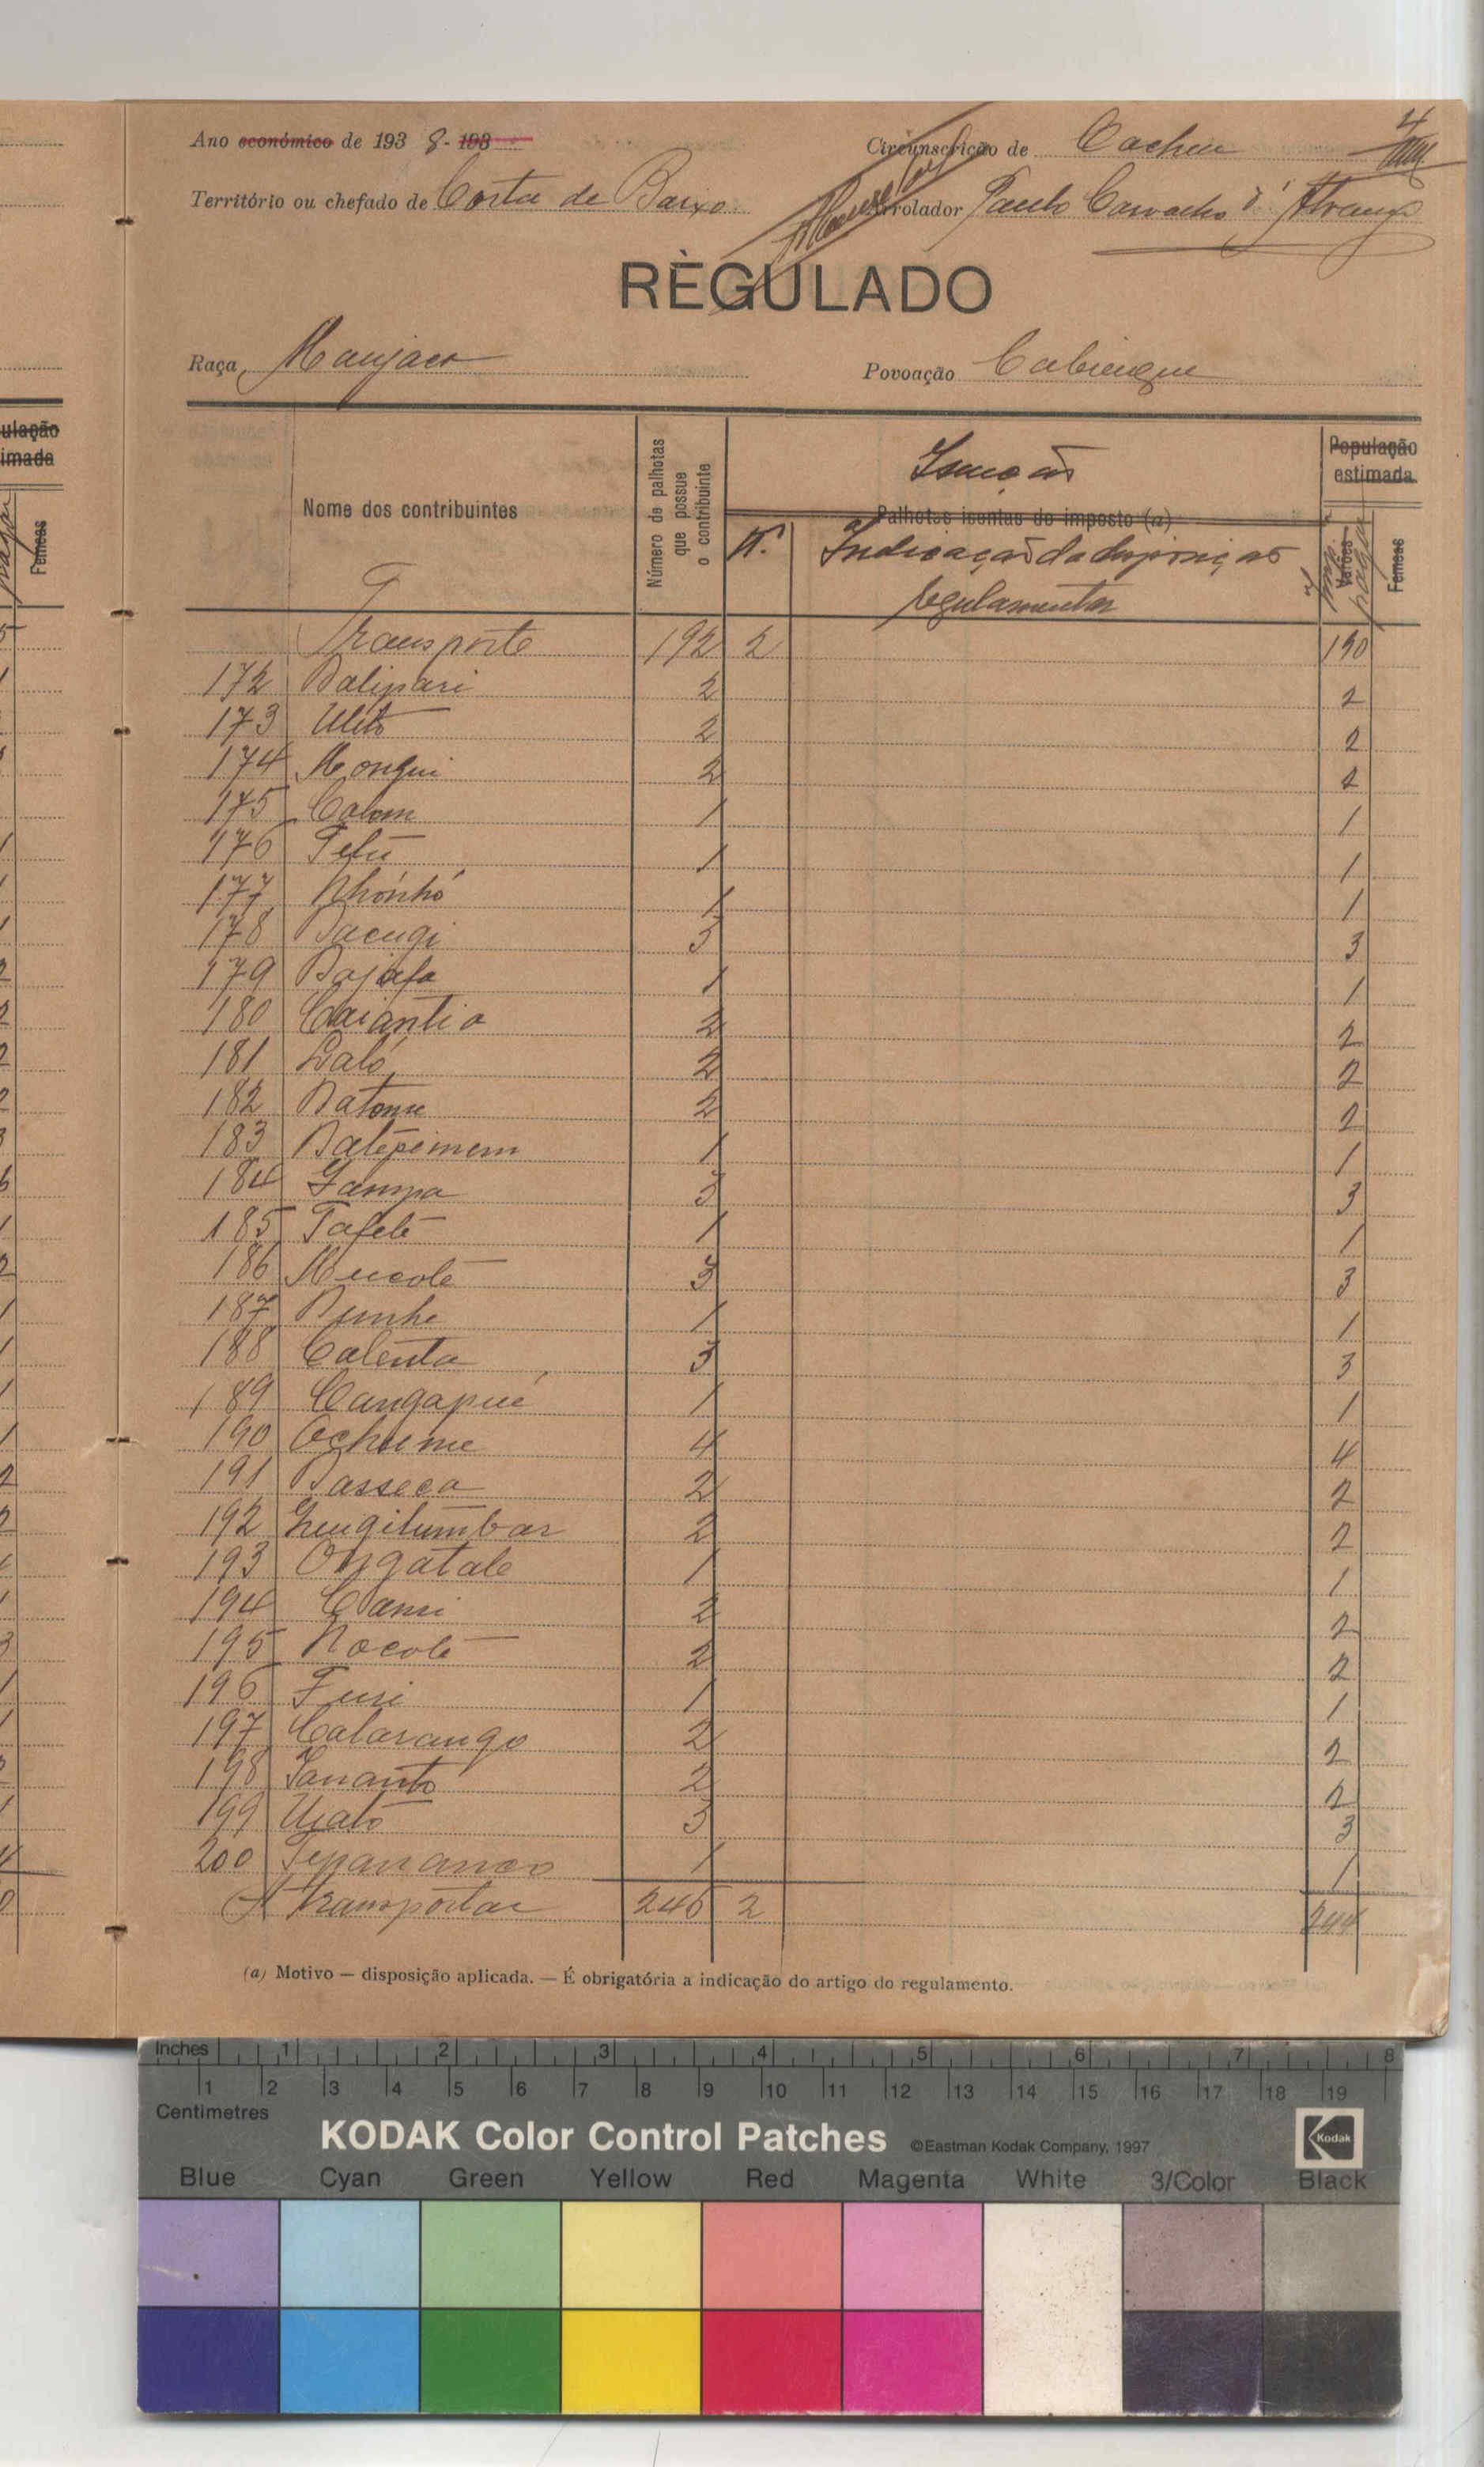 Ano económico de 193 8 - 193
Circunscrição de Cacheu
4
Território ou chefado de Costa de Baixo
Arrolador Paulo Carvalho d'
REGULADO
Raça Manjaco
Povoação
ulação
imada
Femeas
Nome dos contribuintes
Número de palhotas
que possue
o contribuinte
Isenções
Palhotas isentas do imposto (a)
N.
Indicação da disposição
regulamentar
População
estimada
Varões
Imp. pagar
Femeas
Transporte 192 2 190
172 Balipari 2 2
173 Ulito 2 2
174 Mongui 2 2
175 Calom 1 1
176 Tefu 1 1
177 Nhónhó 1 1
178 Bacugi 3 3
179 Bajafa 1 1
180 Caiantia 2 2
181 Laló 2 2
182 Batome 2 2
183 Batépimem 1 1
184 Jampa 3 3
185 Tafetè 1 1
186 Mucolè 3 3
187 Bunhe 1 1
188 Calenta 3 3
189 Cangapué 1 1
190 Ochume 4 4
191 Basseca 2 2
192 2 2
193 Ongatale 1 1
194 Cami 2 2
195 Nocolè 2 2
196 Fusi 1 1
197 Calarango 2 2
198 2 2
199 Uiató 3 3
200 1 1
A transportar 246 2 244
(a) Motivo — disposição aplicada. — É obrigatória a indicação do artigo do regulamento.
Inches 1 2 3 4 5 6 7 8
1 2 3 4 5 6 7 8 9 10 11 12 13 14 15 16 17 18 19
Centimetres
KODAK Color Control Patches ©Eastman Kodak Company, 1997 Kodak
Blue Cyan Green Yellow Red Magenta White 3/Color Black